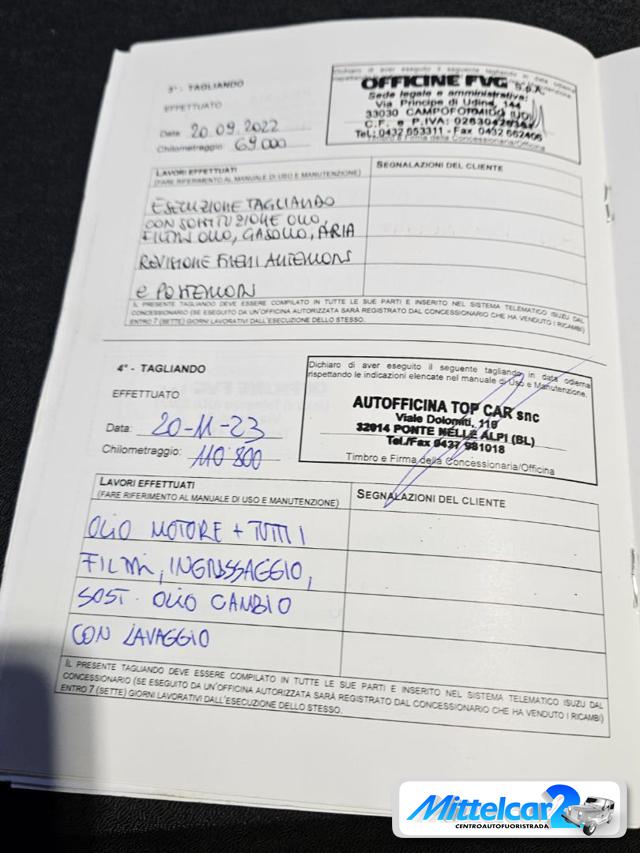 3° - TAGLIANDO
EFFETTUATO
Data: 20.09.2022
Chilometraggio: 69.000
Dichiaro di aver eseguito il seguente tagliando in data odierna
OFFICINE FVG S.p.A.
Sede legale e amministrativa:
Via Principe di Udine, 144
33030 CAMPOFORMIDO (UD)
C.F. e P.IVA:
Tel.: 0432 653311 - Fax 0432 662406
Timbro e Firma della Concessionaria/Officina
LAVORI EFFETTUATI
(FARE RIFERIMENTO AL MANUALE DI USO E MANUTENZIONE)
SEGNALAZIONI DEL CLIENTE
ESECUZIONE TAGLIANDO
CON SOSTITUZIONE OLIO,
FILTRI OLIO, GASOLIO, ARIA
REVISIONE FRENI ANTERIORI
e POSTERIORI
IL PRESENTE TAGLIANDO DEVE ESSERE COMPILATO IN TUTTE LE SUE PARTI E INSERITO NEL SISTEMA TELEMATICO ISUZU DAL
CONCESSIONARIO (SE ESEGUITO DA UN'OFFICINA AUTORIZZATA SARÀ REGISTRATO DAL CONCESSIONARIO CHE HA VENDUTO I RICAMBI)
ENTRO 7 (SETTE) GIORNI LAVORATIVI DALL'ESECUZIONE DELLO STESSO.
4° - TAGLIANDO
EFFETTUATO
Data: 20-11-23
Chilometraggio: 110.800
Dichiaro di aver eseguito il seguente tagliando in data odierna
rispettando le indicazioni elencate nel manuale di Uso e Manutenzione.
AUTOFFICINA TOP CAR snc
Viale Dolomiti, 119
32014 PONTE NELLE ALPI (BL)
Tel./Fax 0437 981018
Timbro e Firma della Concessionaria/Officina
LAVORI EFFETTUATI
(FARE RIFERIMENTO AL MANUALE DI USO E MANUTENZIONE)
SEGNALAZIONI DEL CLIENTE
OLIO MOTORE + TUTTI
FILTRI, INGRASSAGGIO,
SOST. OLIO CAMBIO
CON LAVAGGIO
IL PRESENTE TAGLIANDO DEVE ESSERE COMPILATO IN TUTTE LE SUE PARTI E INSERITO NEL SISTEMA TELEMATICO ISUZU DAL
CONCESSIONARIO (SE ESEGUITO DA UN'OFFICINA AUTORIZZATA SARÀ REGISTRATO DAL CONCESSIONARIO CHE HA VENDUTO I RICAMBI)
ENTRO 7 (SETTE) GIORNI LAVORATIVI DALL'ESECUZIONE DELLO STESSO.
Mittelcar2
CENTROAUTOFUORISTRADA